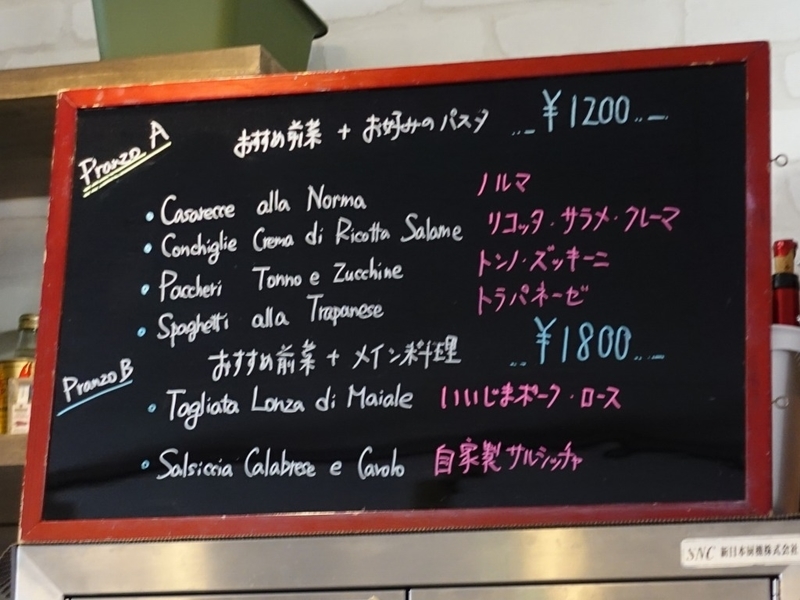 Pranzo A おすすめ前菜 + お好みのパスタ ...¥1200...
・Casarecce alla Norma ノルマ
・Conchiglie Crema di Ricotta Salame リコッタ・サラメ・クレーマ
・Paccheri Tonno e Zucchine トンノ・ズッキーニ
・Spaghetti alla Trapanese トラパネーゼ
Pranzo B おすすめ前菜 + メイン料理 ...¥1800...
・Tagliata Lonza di Maiale いいじまポーク・ロース
・Salsiccia Calabrese e Cavolo 自家製サルシッチャ
SNC 新日本厨機株式会社